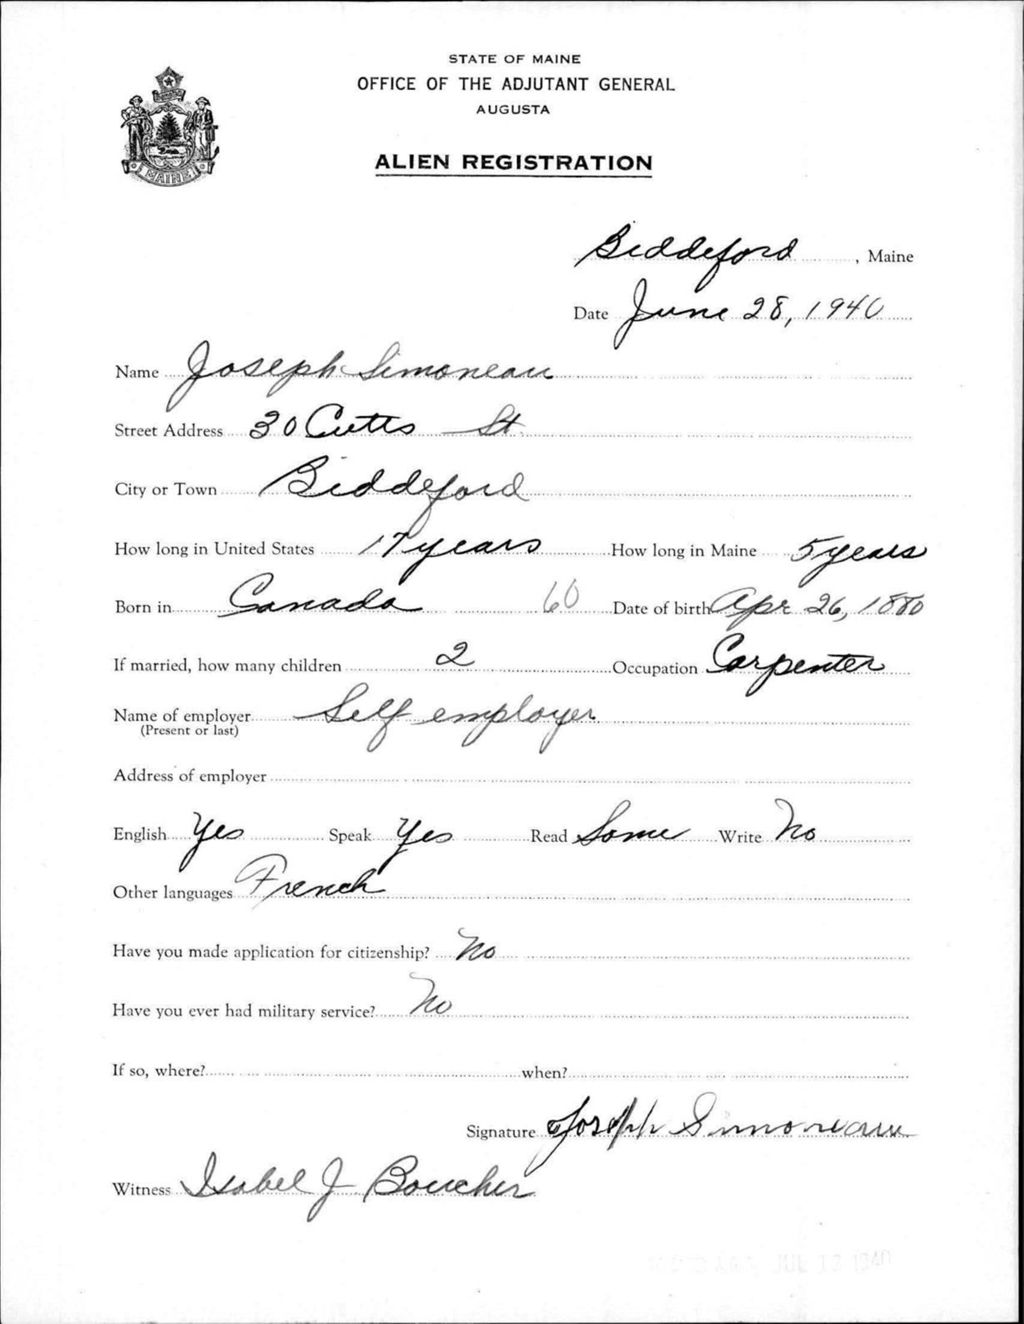 STATE OF MAINE
OFFICE OF THE ADJUTANT GENERAL
AUGUSTA
ALIEN REGISTRATION
MAINE
Biddeford, Maine
Date June 28, 1940
Name Joseph Simoneau
Street Address 30 Cutts St.
City or Town Biddeford
How long in United States 17 years How long in Maine 5 years
Born in Canada 60 Date of birth Apr 26, 1880
If married, how many children 2 Occupation Carpenter
Name of employer Self employer
(Present or last)
Address of employer
English Yes Speak Yes Read Some Write No
Other languages French
Have you made application for citizenship? No
Have you ever had military service? No
If so, where? when?
Signature Joseph Simoneau
Witness Isabel J Boucher
JUL 1940